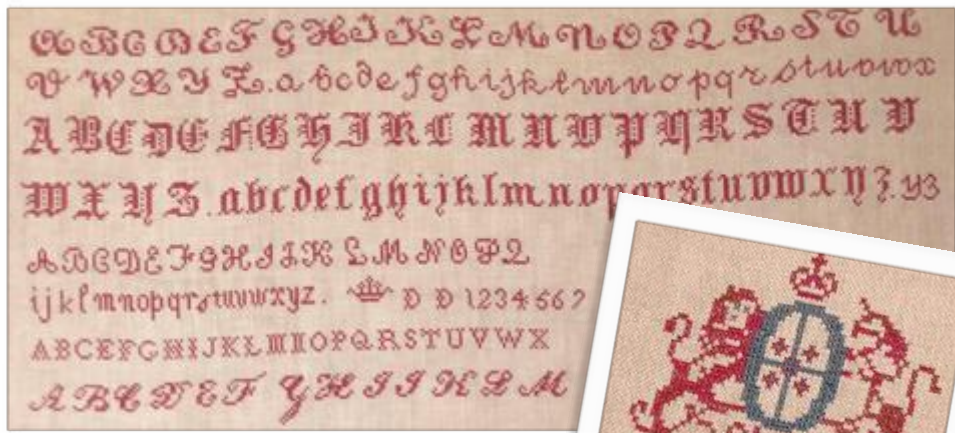 A B C D E F G H I J K L M N O P Q R S T U
V W X Y Z. a b c d e f g h i j k l m n o p q r s t u v w x
A B C D E F G H I K L M N O P Q R S T U V
W X Y Z. a b c d e f g h i j k l m n o p q r s t u v w x y z. y3
A B C D E F G H I J K L M N O P Q
i j k l m n o p q r s t u v w x y z. D D 1 2 3 4 5 6 7
A B C E F G H I J K L M N O P Q R S T U V W X
A B C D E F G H I J K L M